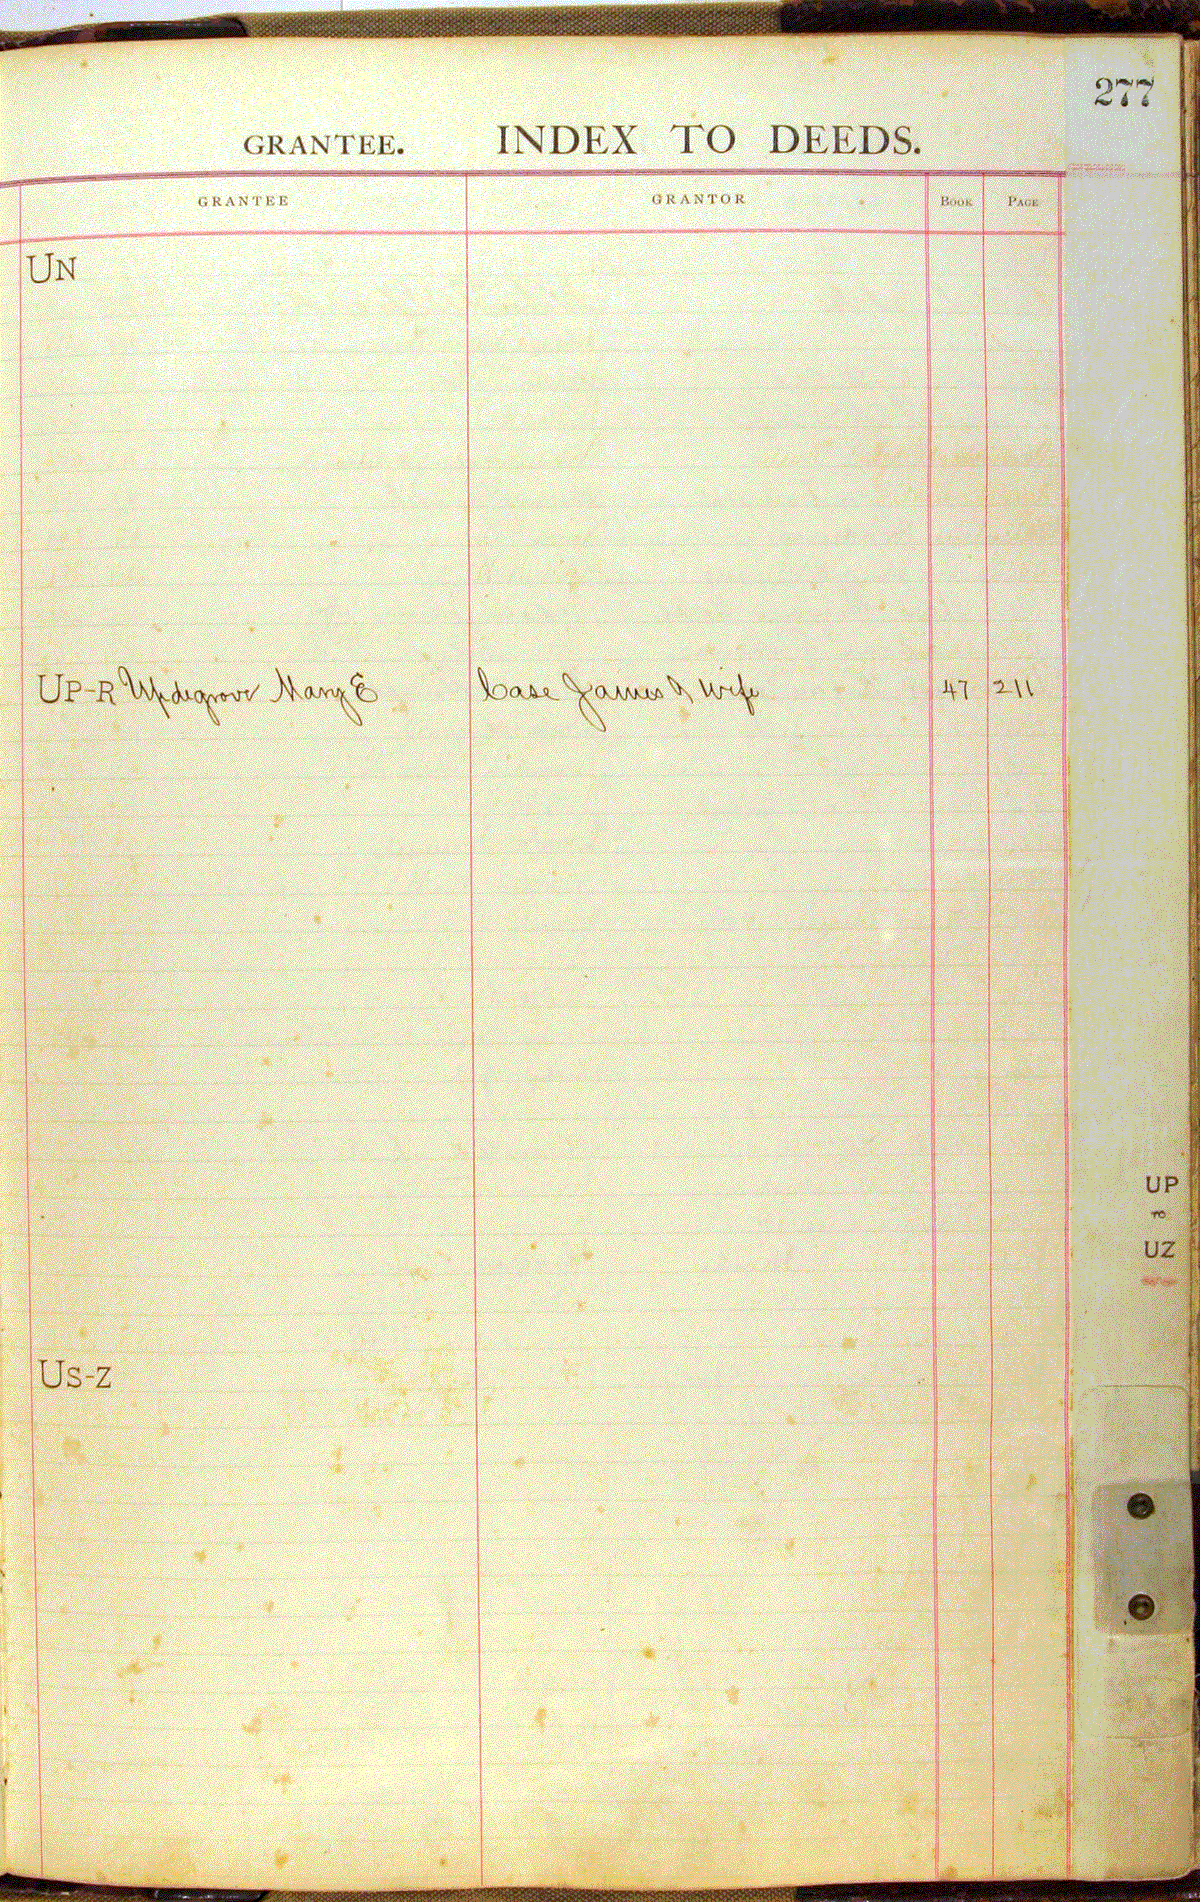 277
GRANTEE. INDEX TO DEEDS.
GRANTEE GRANTOR BOOK PAGE
UN
UP-R Updegrove Mary E Case James & Wife 47 211
UP
TO
UZ
US-Z